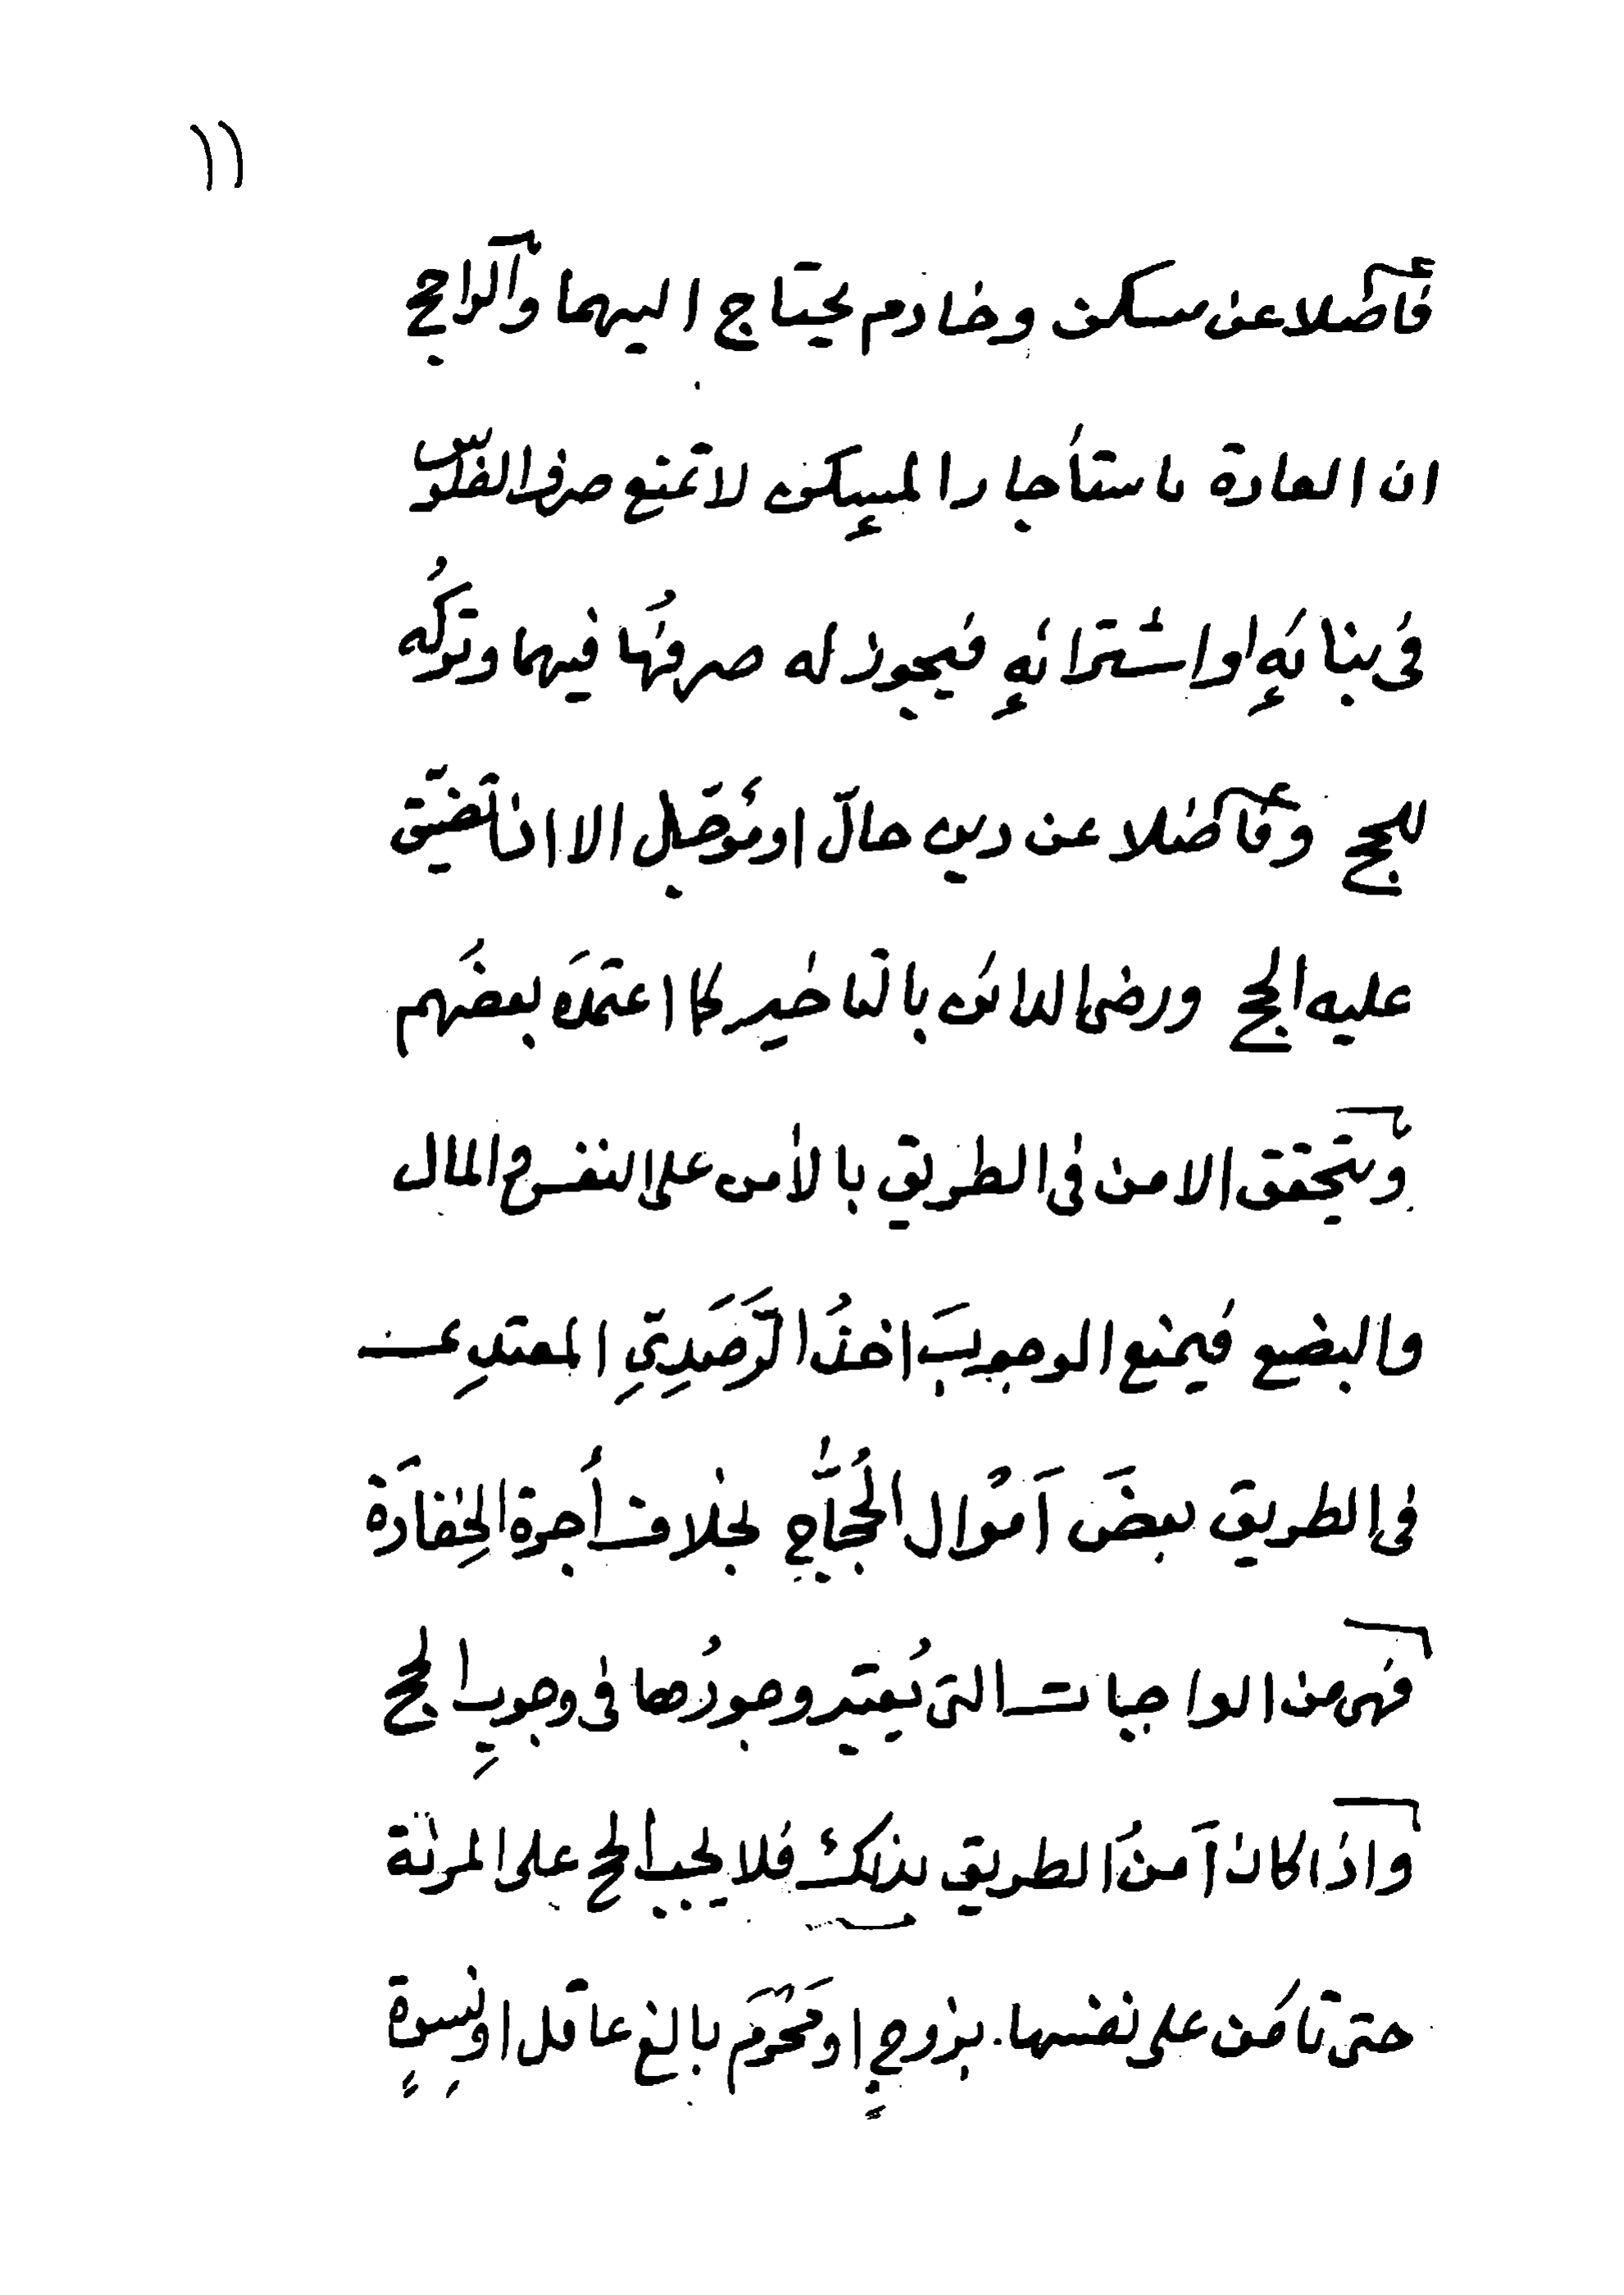 ١١
فاضلا عن مسكن وخادم يحتاج اليهما والراجح
ان العادة باستأجار المسكن لا تمنع صرف الفلوس
في بنائهِ او اشترائهِ فيجوز له صرفُها فيهما وتركُه
للحج وفاضلا عن دين حالّ او مُؤجّل الا ان تضيّق
عليه الحج ورضى الدائن بالتاخير كما اعتمدَه بعضُهم
ويتحقق الامن في الطريق بالأمن على النفس والمال
والبضع فيمنع الوجوبَ اخذُ الرَّصَدِيِّ المعتدِى
في الطريق بعضَ اَمْوال الحُجّاجِ بخلاف أُجرة الخِفارَة
فهى من الواجبات التى يُعتبر وجودُها في وجوبِ الحج
واذا كان اَمنُ الطريق بذلك فلا يجب الحج على المرئة
حتى تامَن على نفسها بزوجٍ او مَحْرَم بالغ عاقل او نِسوةٍ